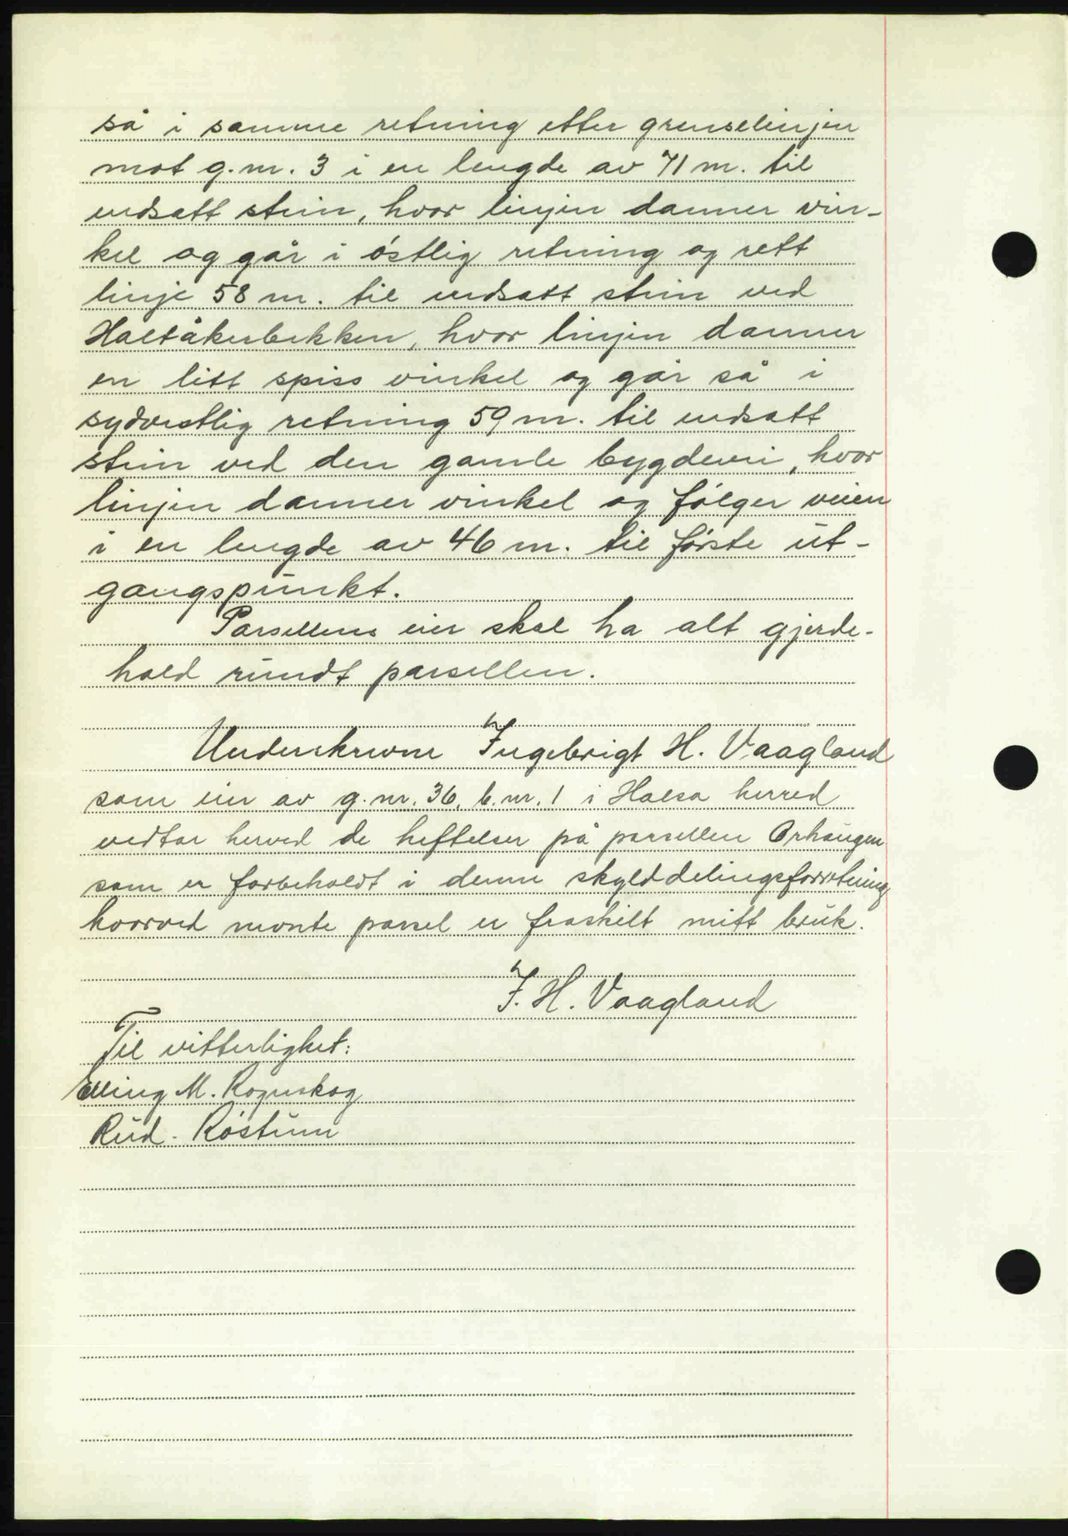 så i samme retning etter grenselinjen
mot g.nr. 3 i en lengde av 71 m. til
nedsatt stein, hvor linjen danner vin-
kel og går i østlig retning og rett
linje 58 m. til nedsatt stein ved
Haltåkerbekken, hvor linjen danner
en litt spiss vinkel og går så i
sydvestlig retning 59 m. til nedsatt
stein ved den gamle bygdevei, hvor
linjen danner vinkel og følger veien
i en lengde av 46 m. til første ut-
gangspunkt.
Parsellens eier skal ha alt gjerde-
hold rundt parsellen.
Underskrevne Ingebrigt H. Vaagland
som eier av g.nr. 36, b.nr. 1 i Halsa herred
vedtar herved de heftelser på parsellen Orhaugen
som er forbeholdt i denne skylddelingsforretning
hvorved nevnte parsel er fraskilt mitt bruk.
I. H. Vaagland
Til vitterlighet:
Elling M. Rognskog
Rud. Røstum